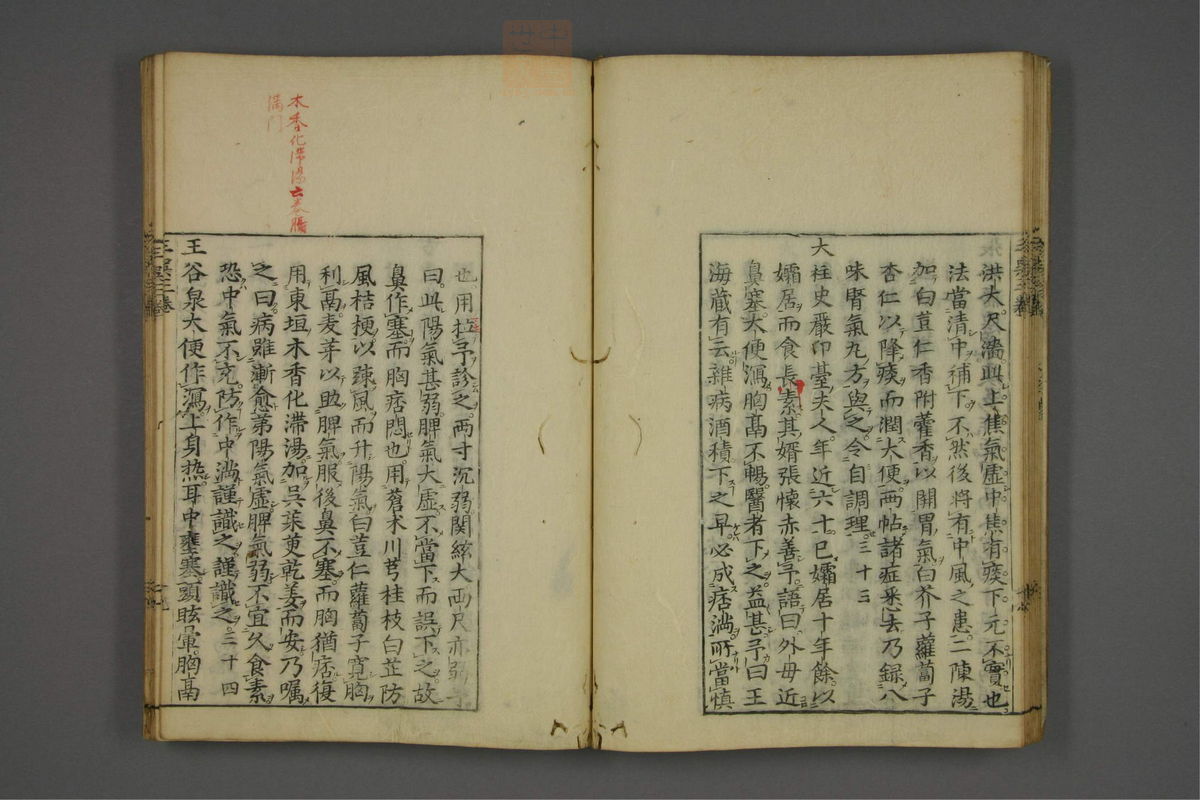 洪大尺濇此上焦氣虛中焦有痰下元不實也
法當清中補下不然後將有中風之患二陳湯
加白荳仁香附藿香以開胃氣白芥子蘿蔔子
杏仁以降痰而潤大便两帖諸症悉去乃録八
味腎氣丸方與之令自調理三十三
大柱史嚴印臺夫人年近六十已孀居十年餘以
孀居而食長素其婿張懷赤善予語曰外母近
鼻塞大便瀉胸鬲不暢醫者下之益甚予曰王
海藏有云雜病酒積下之早必成痞满所當慎
也用拉予診之两寸沉弱関絃大两尺亦弱予
曰此陽氣甚弱脾氣大虛不當下而誤下之故
鼻作塞而胸痞悶也用蒼术川芎桂枝白芷防
風桔梗以疎風而升陽氣白荳仁蘿蔔子寬胸
利鬲麦芽以助脾氣服後鼻不塞而胸猶痞復
用東垣木香化滞湯加吳茱萸乾姜而安乃嘱
之曰病雖漸愈第陽氣虛脾氣弱不宜久食素
恐中氣不充防作中满謹識之謹識之三十四
王谷泉大便作瀉上身热耳中壅塞頭眩暈胸鬲
木香化滞湯六卷脹
満門